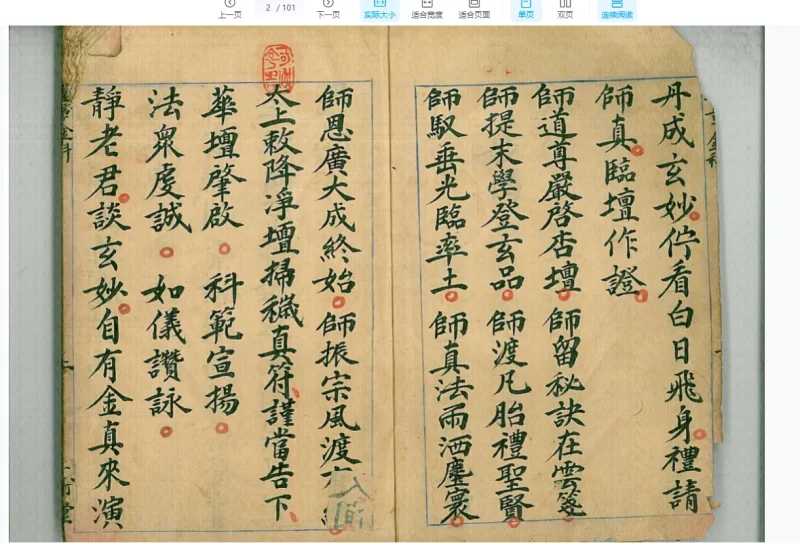 上一页 2 / 101 下一页 实际大小 适合宽度 适合页面 单页 双页 连续阅读
丹成玄妙佇看白日飛身禮請
師真臨壇作證
師道尊嚴啓杏壇 師留秘訣在雲箋
師提末學登玄品 師渡凡胎禮聖賢
師馭垂光臨率土 師真法雨洒塵寰
師恩廣大成終始 師振宗風渡
太上敕降淨壇掃穢真符謹當告下
華壇肇啟 科範宣揚
法衆虔誠 如儀讚詠
靜老君談玄妙自有金真來演